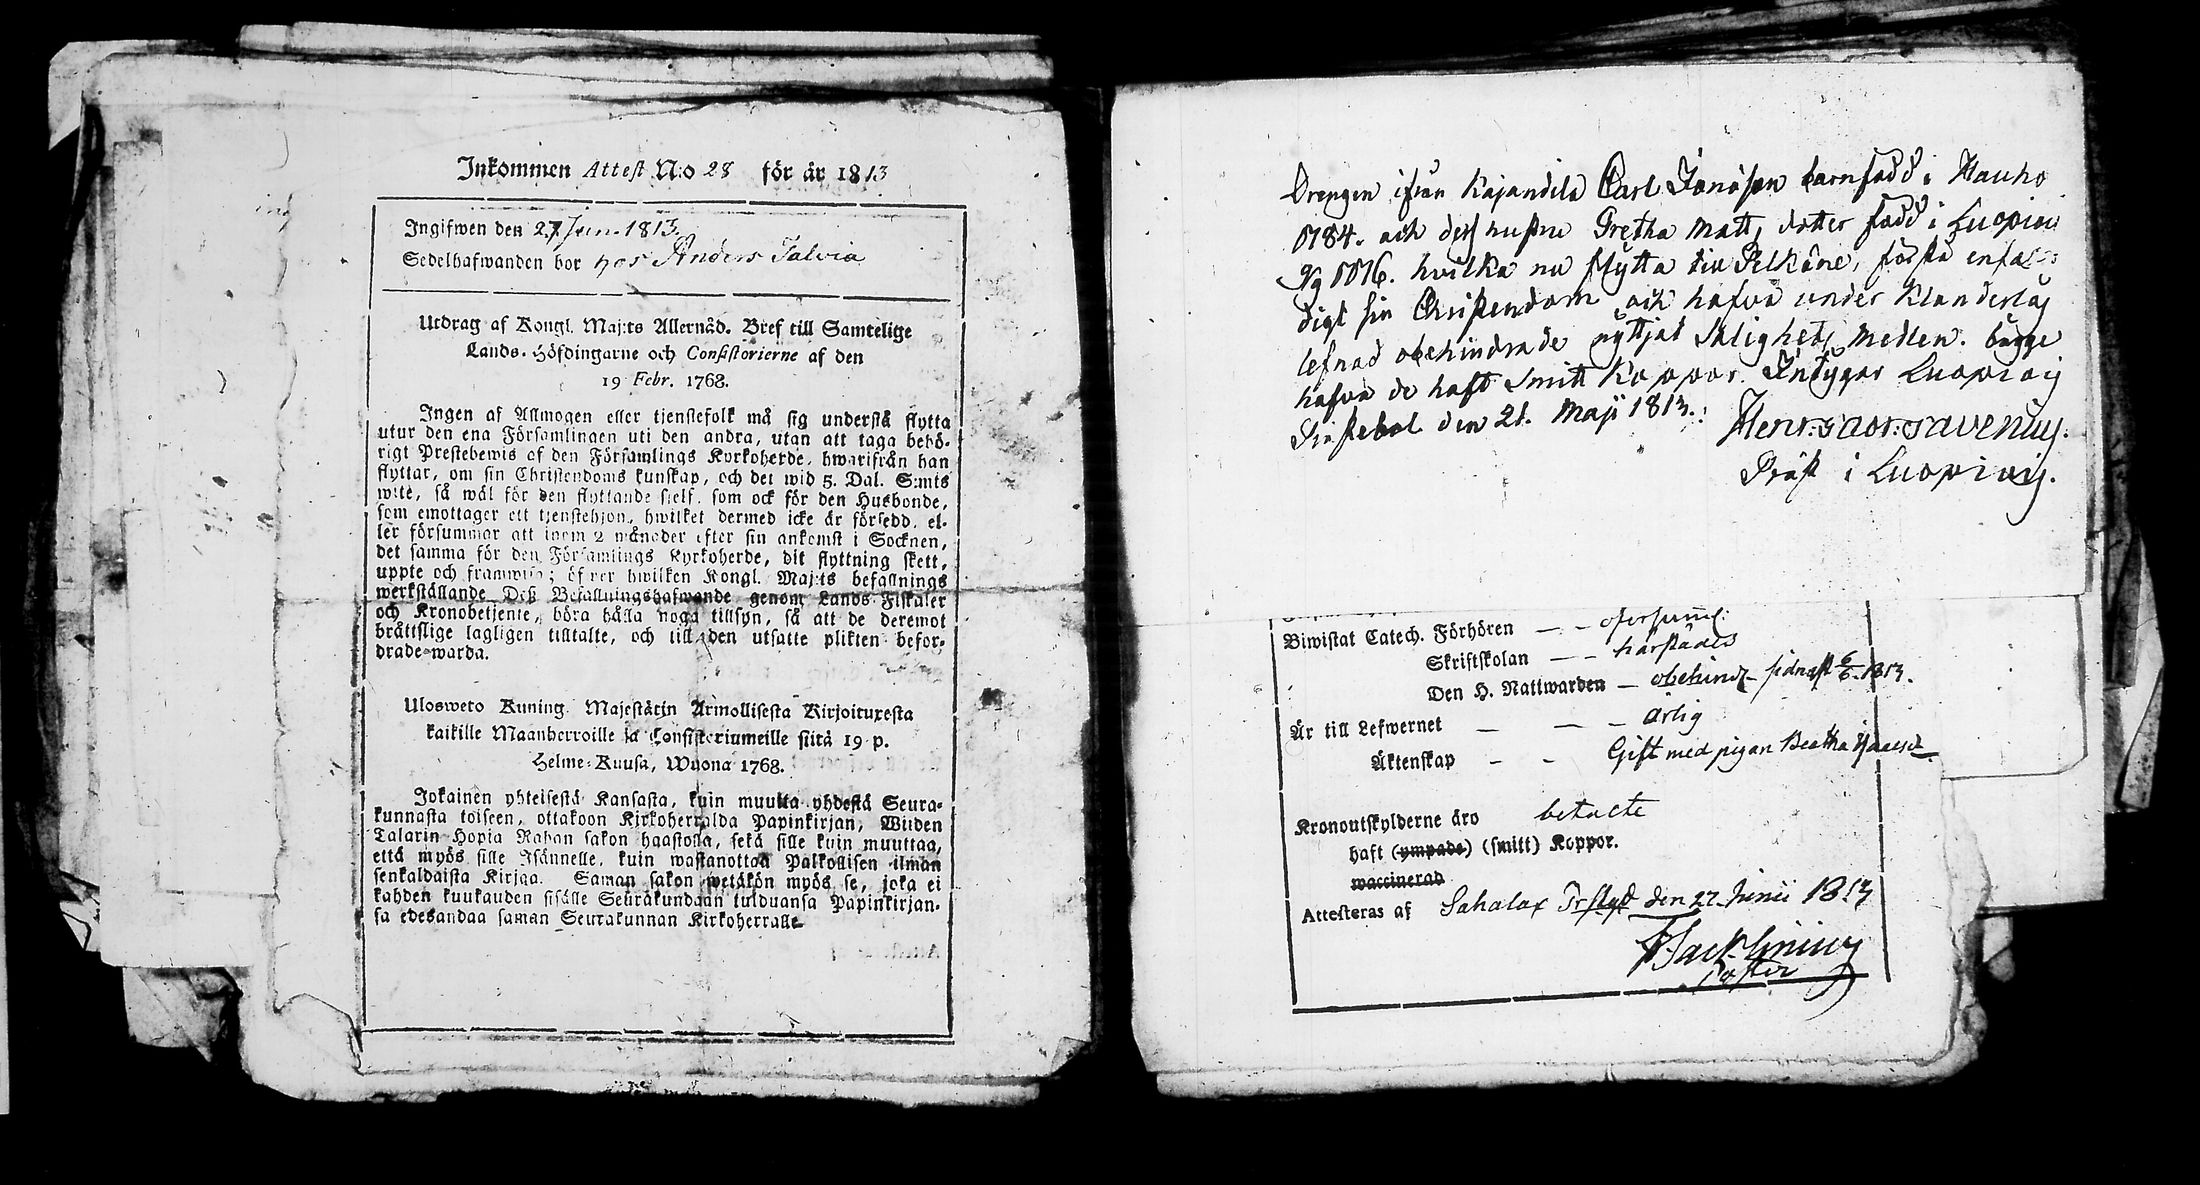 Inkommen Attest N:o 28 för år 1813
Ingifwen den 27 Jun. 1813.
Sedelhafwanden bor hos Anders Talvia
Utdrag af Kongl. Maj:ts Allernåd. Bref till Samtelige
Lands-Höfdingarne och Consistorierne af den
19 Febr. 1768.
Ingen af Allmogen eller tjenstefolk må sig understå flytta
utur den ena Församlingen uti den andra, utan att taga behö-
rigt Prestebewis af den Församlings Kyrkoherde, hwarifrån han
flyttar, om sin Christendoms kunskap, och det wid 5. Dal. S:mts
wite, så wäl för den flyttande sjelf, som ock för den Husbonde,
som emottager ett tjenstehjon, hwilket dermed icke är försedd, el-
ler försummar att inom 2 månader efter sin ankomst i Socknen,
det samma för den Församlings Kyrkoherde, dit flyttning skett,
uppte och framwisa; öfwer hwilken Kongl. Maj:ts befallnings
werkställande Deß Befallningshafwande genom Lands-Fiskaler
och Kronobetjente, böra hålla noga tillsyn, så att de deremot
bråttslige lagligen tilltalte, och till den utsatte plikten befor-
drade warda.
Ulosweto Kuning. Majestätin Armollisesta Kirjoituxesta
kaikille Maanherroille ja Consistoriumeille siitä 19 p.
Helme-Kuusa, Wuona 1768.
Jokainen yhteisestä Kansasta, kuin muutta yhdestä Seura-
kunnasta toiseen, ottakoon Kirkoherralda Papinkirjan, Wiiden
Talarin Hopia Rahan sakon haastolla, sekä sille kuin muuttaa,
että myös sille Isännelle, kuin wastanottaa Palkollisen ilman
senkaldaista Kirjaa. Saman sakon wetäkön myös se, joka ei
kahden kuukauden sisälle Seurakundaan tulduansa Papinkirjan-
sa edesandaa saman Seurakunnan Kirkoherralle
Drengen ifrån Kajandila Carl Jonasson barnfödd i Hauho
1784. och dess hustru Gretha Matts dotter född i Luopiois
1776. hvilka nu flytta till Pelkäne, förstå enfal-
digt sin Christendom och hafva under klanderlös
lefnad obehindrade nyttjat Salighets medlen. bägge
hafva de haft Smitt Koppor. Intygar Luopiois
Prästebol den 21. Maji 1813.:
Henr. Gabr. Savenius.
Präst i Luopiois.
Biwistat Catech. Förhören — - ofersuml:
Skriftskolan — - härstädes
Den H. Nattwarden — obehindr. sidnast 6/6 1813.
Är till Lefwernet — — - ärlig
Äktenskap - - Gift med pigan Beatha
Kronoutskylderne äro betalte
haft (ympade) (smitt) Koppor.
waccinerad
Attesteras af Sahalax Prstgd den 27 Junii 1813